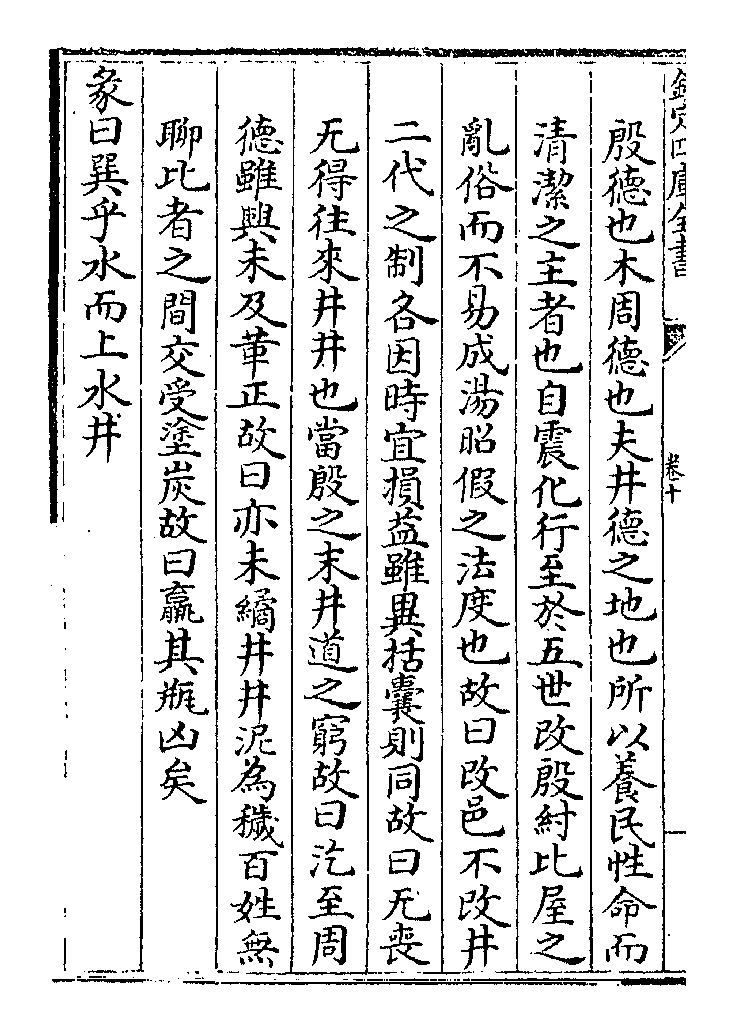 欽定四庫全書
卷十
殷德也木周德也夫井德之地也所以養民性命而
清潔之主者也自震化行至於五世改殷紂比屋之
亂俗而不易成湯昭假之法度也故曰改邑不改井
二代之制各因時宜損益雖異括囊則同故曰无喪
无得往來井井也當殷之末井道之窮故曰汔至周
德雖興未及革正故曰亦未繘井井泥為穢百姓無
聊比者之間交受塗炭故曰羸其瓶凶矣
彖曰巽乎水而上水井